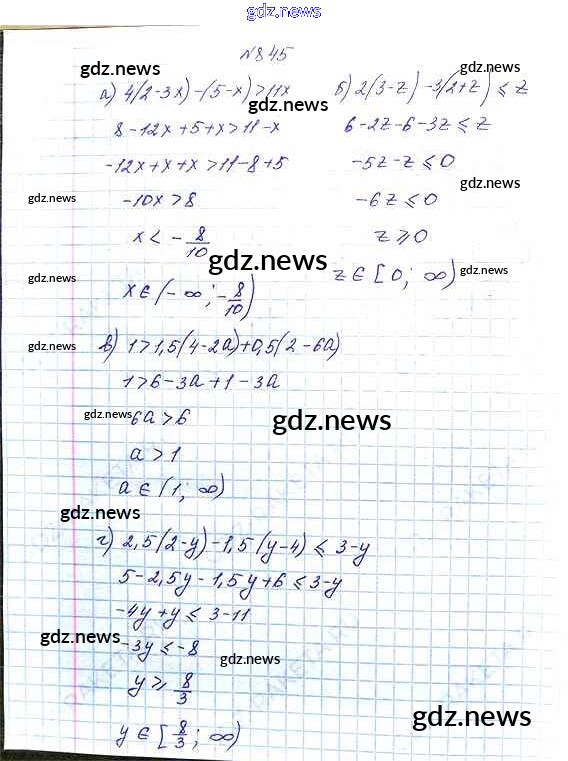 gdz.news
№845
gdz.news
а) 4(2-3x)-(5-x)>11x
б) 2(3-z)-3(2+z)≤z
gdz.news
8-12x+5+x>11-x
6-2z-6-3z≤z
-12x+x+x>11-8+5
-5z-z≤0
gdz.news
gdz.news
-10x>8
-6z≤0
x<-8/10
z≥0
gdz.news
z∈[0; ∞)
gdz.news
gdz.news
x∈(-∞; -8/10)
gdz.news
в) 1>1,5(4-2a)+0,5(2-6a)
1>6-3a+1-3a
gdz.news
6a>6
gdz.news
a>1
a∈(1; ∞)
gdz.news
г) 2,5(2-y)-1,5(y-4)≤3-y
5-2,5y-1,5y+6≤3-y
-4y+y≤3-11
gdz.news
-3y≤-8
gdz.news
y≥8/3
gdz.news
y∈[8/3; ∞)